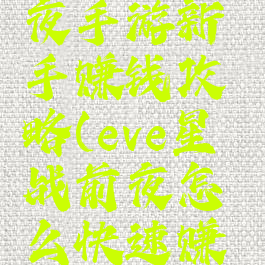 夜手游新
手赚钱攻
略(eve星
战前夜怎
么快速赚